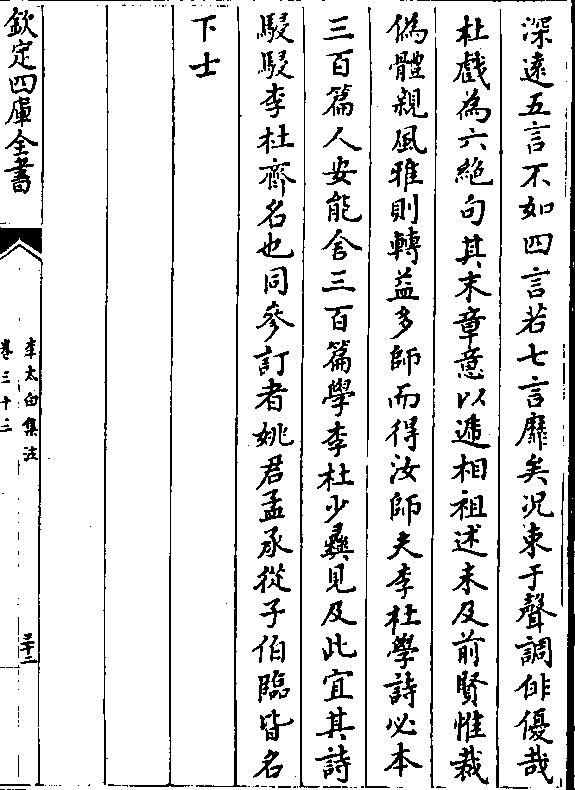 深遠五言不如四言若七言靡矣况束于聲調俳優哉
杜戲為六絶句其末章意以遞相祖述未及前賢惟裁
偽體親風雅則轉益多師而得汝師夫李杜學詩必本
三百篇人安能舍三百篇學李杜少彞見及此宜其詩
駸駸李杜齊名也同參訂者姚君孟承從子伯臨皆名
下士
欽定四庫全書
李太白集注
卷三十三
三十二